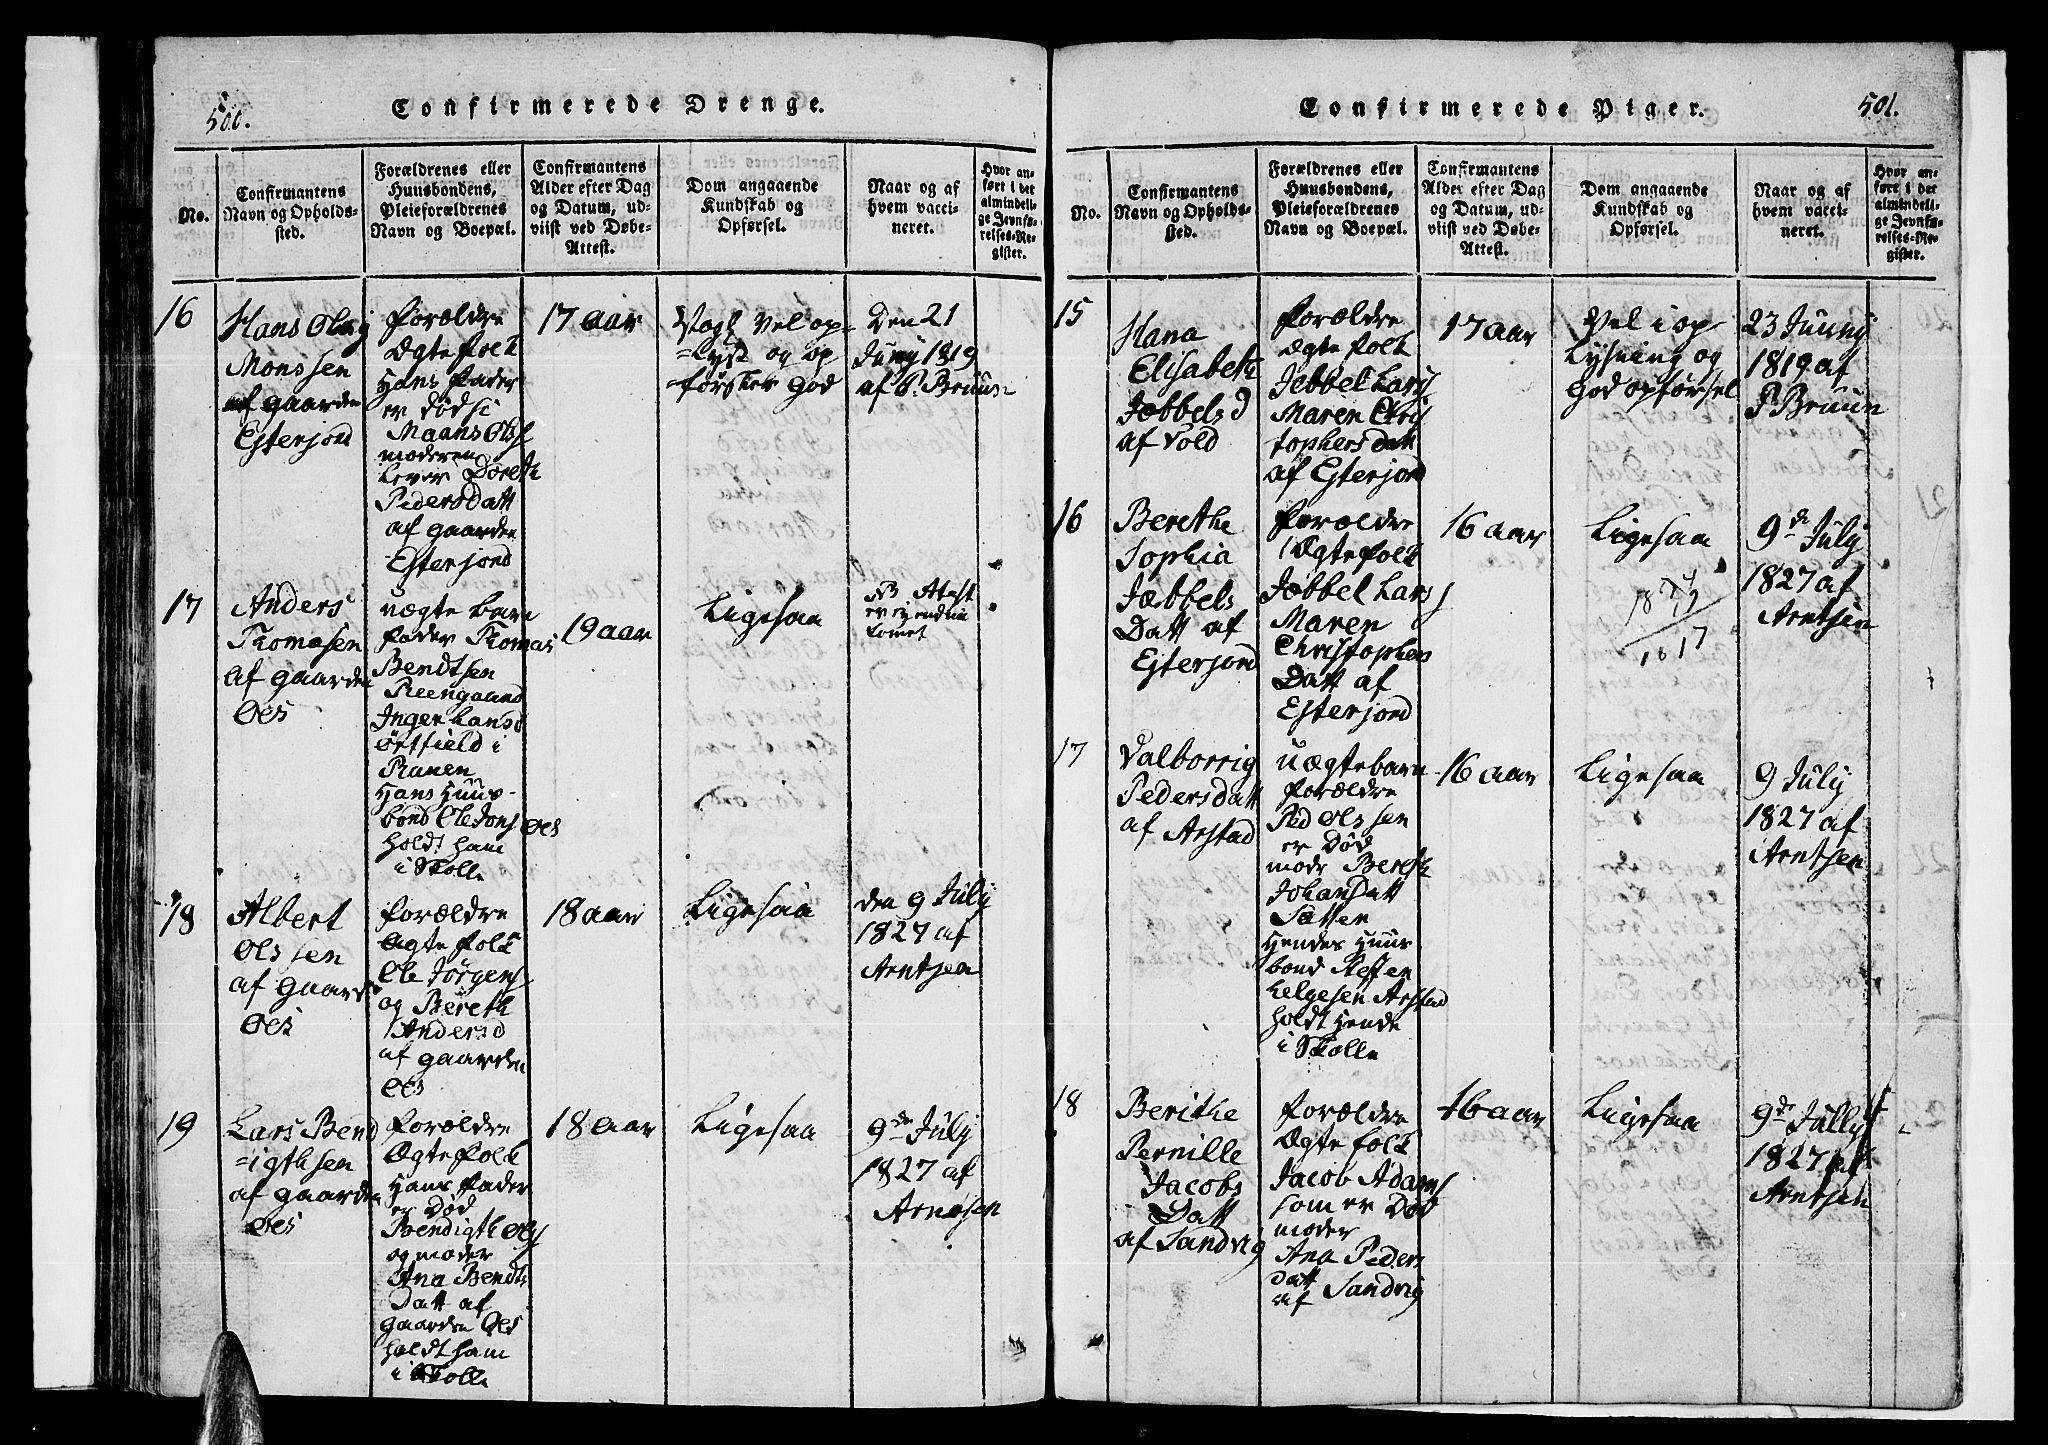 500.
Confirmerede Drenge.
No.
Confirmantens
Navn og Opholds-
sted.
Forældrenes eller
Huusbondens,
Pleieforældrenes
Navn og Boepæl.
Confirmantens
Alder efter Dag
og Datum, ud-
viist ved Døbe-
Attest.
Dom angaaende
Kundskab og
Opførsel.
Naar og af
hvem vacci-
neret.
Hvor an-
ført i det
almindeli-
ge Jevnfø-
relses-Re-
gister.
16
Hans Olaj
Monssen
af gaarden
Esterjord
forældre
Ægte folk
hans fader
er død si
Maans Ols
moderen
lever Doreth
Pedersdatt
af gaarden
Esterjord
17 aar
Vel op=
=lyst og op
=førsker God
Den 21
Juny 1819
af P. Bruun
17
Anders
Thomasen
af gaarden
Øes
uægte barn
fader Thomas
Bendtsen
Reengaand
Inger Hansd
Ørtfield i
Ranen
hans Huus-
bond Ole Jons Øes
holdt ham
i Skolle
19 aar
Ligesaa
NB Atest
er ejendnu
komet
18
Albert
Olssen
af gaard
Øes
forældre
Ægte folk
Ole Jørgens
og Bereth
Andersd
af gaarden
Øes
18 aar
Ligesaa
den 9 July
1827 af
Arntsen
19
Lars Bend
=igthsen
af gaarden
Øes
forældre
Ægte folk
hans fader
er Død
Bendigth Ols
og moder
Ana Bendts
Datt af
gaarden Øes
holdt ham
i Skolle
18 aar
Ligesaa
9de July
1827 af
Arntsen
Confirmerede Piger.
501.
No.
Confirmantens
Navn og Opholds-
sted.
Forældrenes eller
Huusbondens,
Pleieforældrenes
Navn og Boepæl.
Confirmantens
Alder efter Dag
og Datum, ud-
viist ved Døbe-
Attest.
Dom angaaende
Kundskab og
Opførsel.
Naar og af
hvem vacci-
neret.
Hvor an-
ført i det
almindeli-
ge Jevnfø-
relses-Re-
gister.
15
Hana
Elisabeth
Jæbbels d
af Vold
forældre
Ægte folk
Jebbel Lars
Maren Chris
tophers datt
af Esterjord
17 aar
Vel i op
lysning og
God opførsel
23 Juuny
1819 af
P Bruun
16
Berethe
Sophia
Jæbbels
Datt af
Esterjord
forældre
Ægtefolk
Jæbbel Lars
Maren
Christophers
Datt af
Esterjord
16 aar
Ligesaa
1817
9de July
1827 af
Arntsen
17
Valborrig
Pedersdatt
af Arstad
uægtebarn
forældre
Ped Olssen
er Død
modr Bereth
Johansdatt
Satten
hendes Huus
bond Steffen
Helgesen Arstad
holdt hende
i Skolle
16 aar
Ligesaa
9 July
1827 af
Arntsen
18
Berithe
Pernille
Jacobs
Datt
af Sandvig
forældre
Ægte folk
Jacob Adams
som er Død
moder
Ana Peders
datt
af Sandvig
16 aar
Ligesaa
9de Jully
1827 af
Arntsen